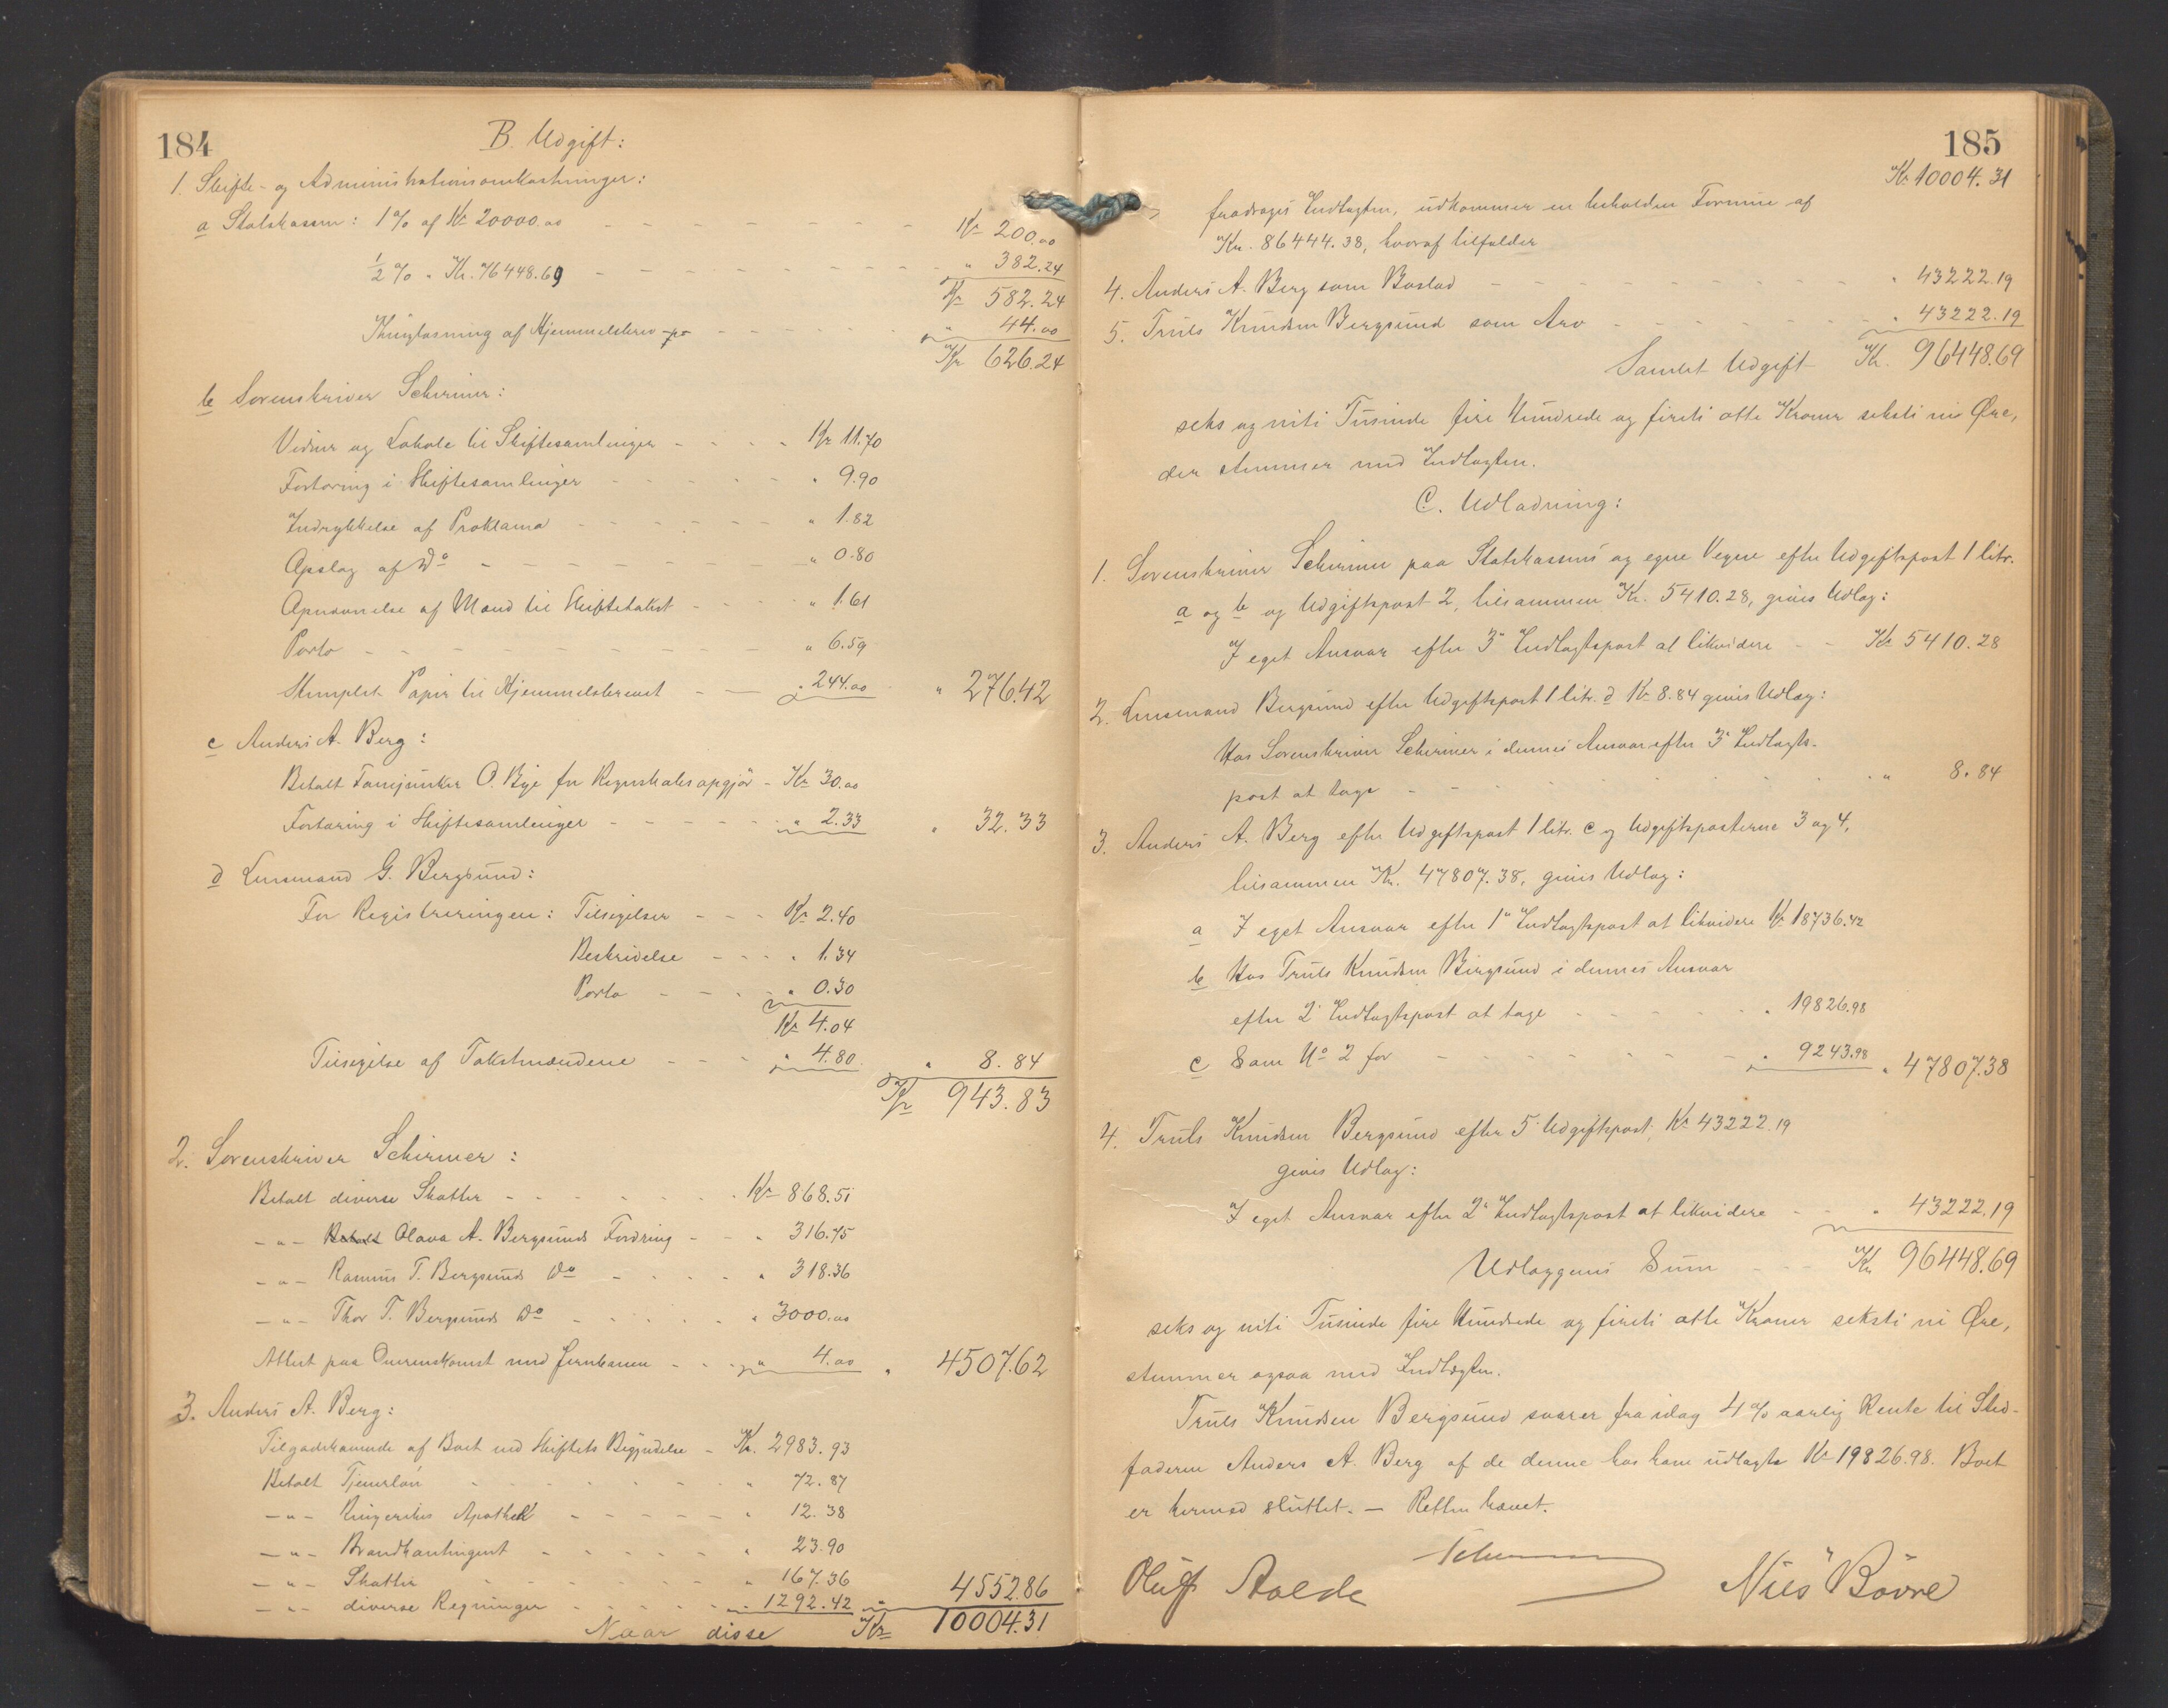 184
B. Udgift:
1. Skifte- og Administrationsomkostninger:
a Statskassen: 1% af Kr 20000.00 - - - - - - Kr 200.00
½% " Kr. 76448.69 - - - - - - " 382.24
Kr 582.24
Thinglæsning af Hjemmelsbrev - - - - - - " 44.00
Kr 626.24
b Sorenskriver Schirmer:
Vidner og Lokale til Skiftesamlinger - - - - Kr 11.70
Fortæring i Skiftesamlinger - - - - - " 9.90
Indrykkelse af Proklama - - - - - - " 1.82
Opslag af Do - - - - - - - " 0.80
Opnævnelse af Mænd til Skiftetakst - - - - " 1.61
Porto - - - - - - - - - " 6.59
Stemplet Papir til Hjemmelsbrevet - - " 244.00 " 276.42
c Anders A. Berg:
Betalt Fanejunker O. Bye for Regnskabsopgjör - Kr 30.00
Fortæring i Skiftesamlinger - - - - - " 2.33 " 32.33
d Lensmand G. Bergsund:
For Registreringen: Tilsigelser - - - Kr 2.40
Beskrivelse - - - " 1.34
Porto - - - " 0.30
Kr 4.04
Tilsigelse af Takstmændene - - - " 4.80 " 8.84
Kr 943.83
2. Sorenskriver Schirmer:
Betalt diverse Skatter - - - - - - Kr 868.51
- " - Olava A. Bergsunds Fordring - - " 316.75
- " - Rasmus T. Bergsunds Do - - - - " 318.36
- " - Thor T. Bergsunds Do - - - - - " 3000.00
Attest paa Overenskomst med Jernbanen - - - " 4.00 " 4507.62
3. Anders A. Berg:
Tilgodehavende af Boet ved Skiftets Begyndelse - Kr. 2983.93
Betalt Tjenerløn - - - - - - " 72.87
- " - Ringerikes Apothek - - - - - " 12.38
- " - Brandkontingent - - - - - " 23.90
- " - Skatter - - - - - - " 167.36
- " - diverse Regninger - - - - - " 1292.42 " 4552.86
Naar disse Kr 10004.31
185
Kr 10004.31
fradrages Indtægten, udkommer en beholden Formue af
Kr. 86444.38, hvoraf tilfalder
4. Anders A. Berg som Boslod - - - - - - - " 43222.19
5. Truls Knudsen Bergsund som Arv - - - - - " 43222.19
Samlet Udgift Kr. 96448.69
seks og niti Tusinde fire Hundrede og firti otte Kroner seksti ni Øre,
der stemmer med Indtægten.
C. Udlodning:
1. Sorenskriver Schirmer paa Statskassens og egne Vegne efter Udgiftspost 1 litr.
a og b og Udgiftspost 2, tilsammen Kr. 5410.28, gives Udlæg:
I eget Ansvar efter 3" Indtægtspost at likvidere - - Kr 5410.28
2. Lensmand Bergsund efter Udgiftspost 1 litr. d Kr 8.84 gives Udlæg:
Hos Sorenskriver Schirmer i dennes Ansvar efter 3" Indtægts-
post at tage - - - - - - - - " 8.84
3. Anders A. Berg efter Udgiftspost 1 litr. c og Udgiftsposterne 3 og 4,
tilsammen Kr. 47807.38, gives Udlæg:
a I eget Ansvar efter 1" Indtægtspost at likvidere Kr 18736.42
b Hos Truls Knudsen Bergsund i dennes Ansvar
efter 2" Indtægtspost at tage - - - - - - " 19826.98
c Som No 2 for - - - - - - - " 9243.98 " 47807.38
4. Truls Knudsen Bergsund efter 5" Udgiftspost, Kr 43222.19
gives Udlæg:
I eget Ansvar efter 2" Indtægtspost at likvidere - - " 43222.19
Udlæggenes Sum - - - Kr. 96448.69
seks og niti Tusinde fire Hundrede og firti otte Kroner seksti ni Øre,
stemmer ogsaa med Indtægten.
Truls Knudsen Bergsund svarer fra idag 4% aarlig Rente til Sted-
faderen Anders A. Berg af de denne hos ham udlagte Kr 19826.98. Boet
er hermed sluttet. - Retten hævet.
Schirmer
Oluf Aalde
Nils Bövre